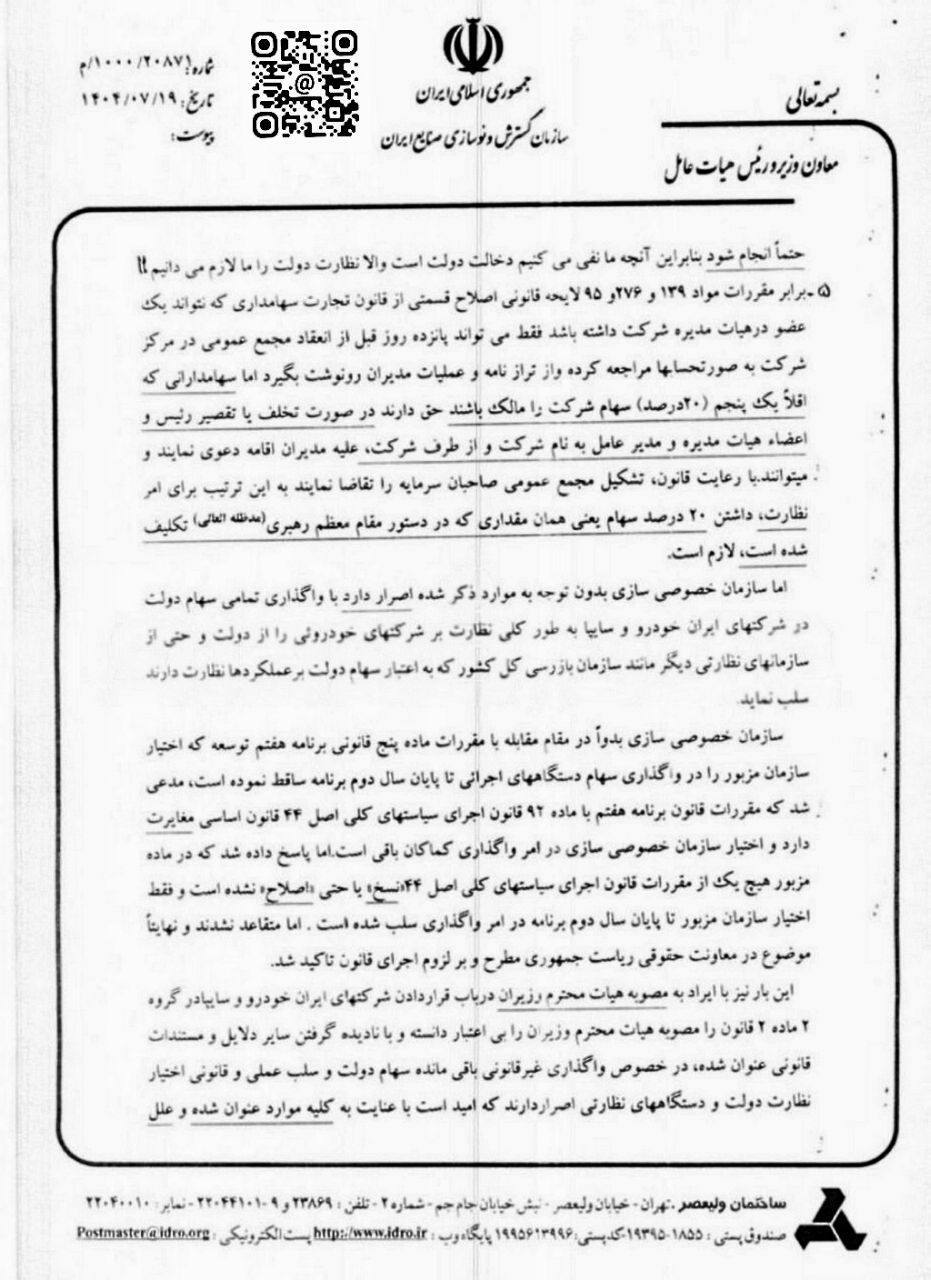 بسمه‌تعالی
جمهوری اسلامی ایران
سازمان گسترش و نوسازی صنایع ایران
معاون وزیر و رئیس هیات عامل
شماره: ۱۰۰۰/۲۰۸۷۱/م
تاریخ: ۱۴۰۴/۰۷/۱۹
پیوست:
حتماً انجام شود بنابراین آنچه ما نفی می کنیم دخالت دولت است والا نظارت دولت را ما لازم می دانیم!!
۵ـ برابر مقررات مواد ۱۳۹ و ۲۷۶و ۹۵ لایحه قانونی اصلاح قسمتی از قانون تجارت سهامداری که نتواند یک
عضو درهیات مدیره شرکت داشته باشد فقط می تواند پانزده روز قبل از انعقاد مجمع عمومی در مرکز
شرکت به صورتحسابها مراجعه کرده واز تراز نامه و عملیات مدیران رونوشت بگیرد اما سهامدارانی که
اقلاً یک پنجم (۲۰درصد) سهام شرکت را مالک باشند حق دارند در صورت تخلف یا تقصیر رئیس و
اعضاء هیات مدیره و مدیر عامل به نام شرکت و از طرف شرکت، علیه مدیران اقامه دعوی نمایند و
میتوانند.با رعایت قانون، تشکیل مجمع عمومی صاحبان سرمایه را تقاضا نمایند به این ترتیب برای امر
نظارت، داشتن ۲۰ درصد سهام یعنی همان مقداری که در دستور مقام معظم رهبری(مدظله العالی) تکلیف
شده است، لازم است.
اما سازمان خصوصی سازی بدون توجه به موارد ذکر شده اصرار دارد با واگذاری تمامی سهام دولت
در شرکتهای ایران خودرو و سایپا به طور کلی نظارت بر شرکتهای خودروئی را از دولت و حتی از
سازمانهای نظارتی دیگر مانند سازمان بازرسی کل کشور که به اعتبار سهام دولت برعملکردها نظارت دارند
سلب نماید.
سازمان خصوصی سازی بدواً در مقام مقابله با مقررات ماده پنج قانونی برنامه هفتم توسعه که اختیار
سازمان مزبور را در واگذاری سهام دستگاههای اجرائی تا پایان سال دوم برنامه ساقط نموده است، مدعی
شد که مقررات قانون برنامه هفتم با ماده ۹۲ قانون اجرای سیاستهای کلی اصل ۴۴ قانون اساسی مغایرت
دارد و اختیار سازمان خصوصی سازی در امر واگذاری کماکان باقی است.اما پاسخ داده شد که در ماده
مزبور هیچ یک از مقررات قانون اجرای سیاستهای کلی اصل ۴۴«نسخ» یا حتی «اصلاح» نشده است و فقط
اختیار سازمان مزبور تا پایان سال دوم برنامه در امر واگذاری سلب شده است . اما متقاعد نشدند و نهایتاً
موضوع در معاونت حقوقی ریاست جمهوری مطرح و بر لزوم اجرای قانون تاکید شد.
این بار نیز با ایراد به مصوبه هیات محترم وزیران درباب قراردادن شرکتهای ایران خودرو و سایپادر گروه
۲ ماده ۲ قانون را مصوبه هیات محترم وزیران را بی اعتبار دانسته و با نادیده گرفتن سایر دلایل و مستندات
قانونی عنوان شده، در خصوص واگذاری غیرقانونی باقی مانده سهام دولت و سلب عملی و قانونی اختیار
نظارت دولت و دستگاههای نظارتی اصراردارند که امید است با عنایت به کلیه موارد عنوان شده و علل
ساختمان ولیعصر .تهران - خیابان ولیعصر - نبش خیابان جام جم - شماره ۲ - تلفن : ۲۳۸۶۹ و ۹-۲۲۰۴۴۱۰۱ - نمابر: ۲۲۰۴۰۰۱۰
صندوق پستی : ۱۸۵۵-۱۹۳۹۵-کدپستی: ۱۹۹۵۶۱۳۹۹۶ پایگاه وب : http://www.idro.ir پست الکترونیکی : Postmaster@idro.org